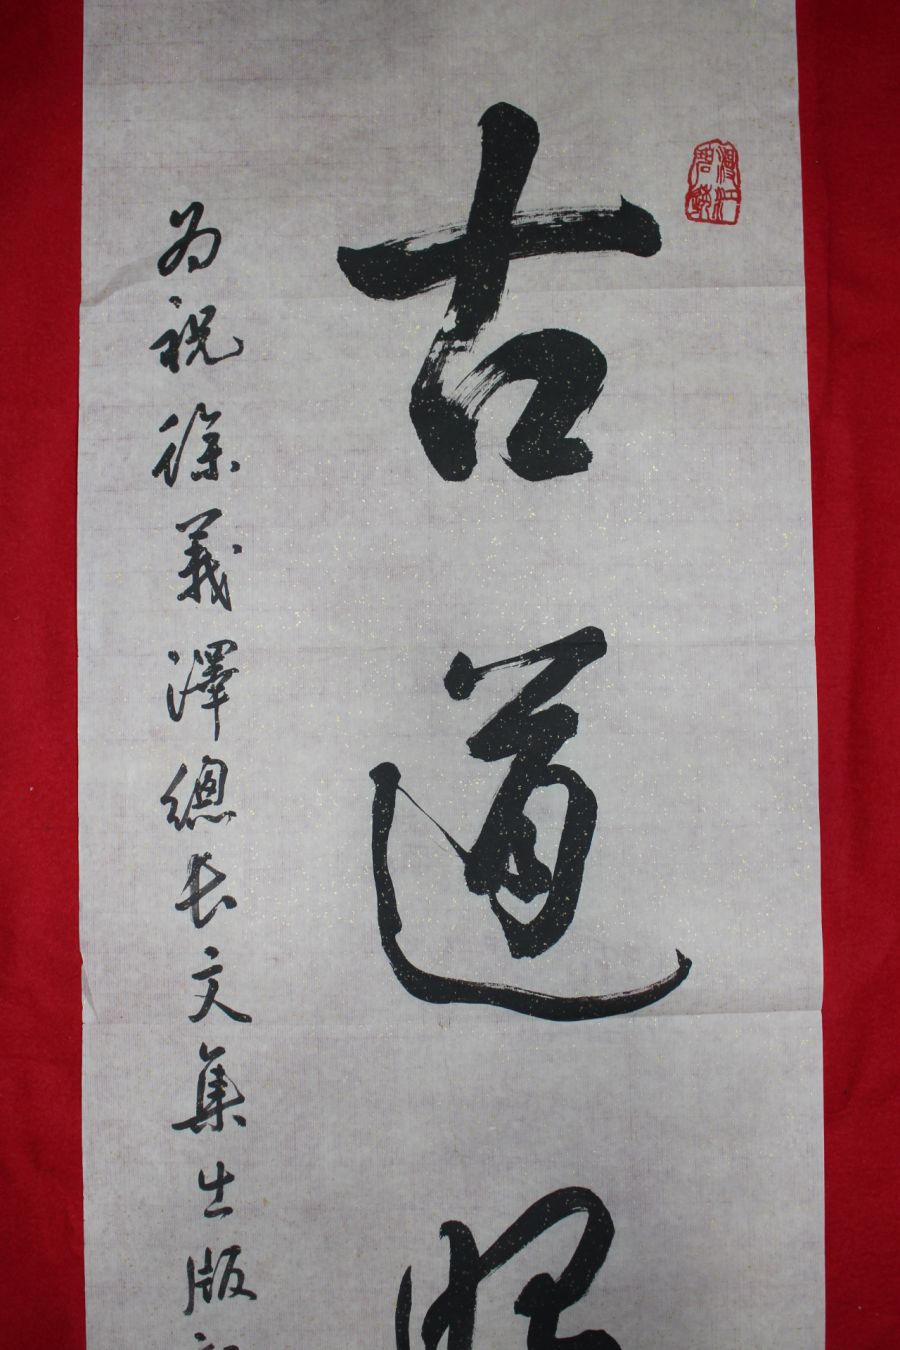 古道
为祝徐義澤總长文集出版